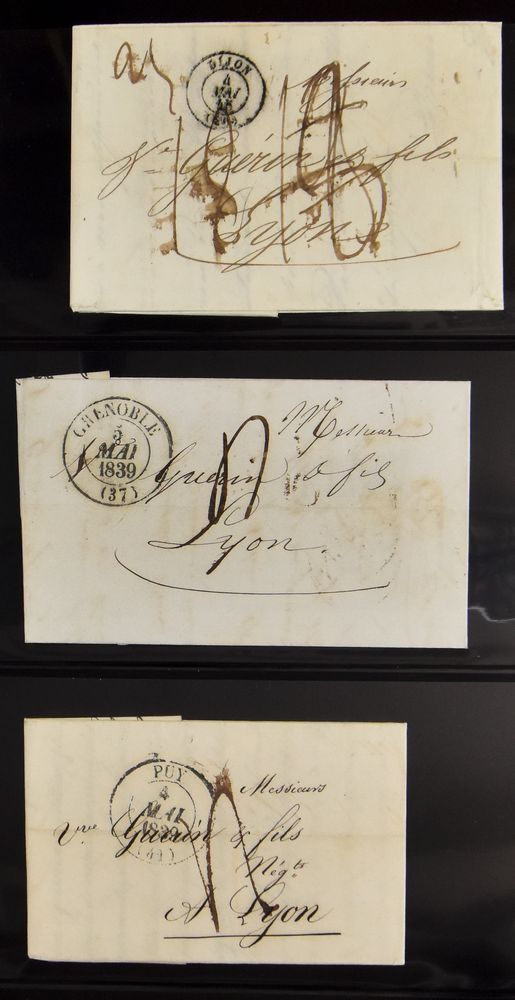 DIJON
4
MAI
Messieurs
Vve Guérin & fils
Lyon
GRENOBLE
5
MAI
1839
(37)
Messieurs
Ve Guerin & fils
Lyon
PUY
4
MAI
1839
(41)
Messieurs
Vve Guérin & fils
Négts
A Lyon